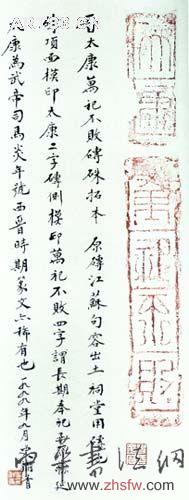 太康
萬祀不敗
晋太康萬祀不敗磚硃拓本 原磚江蘇句容出土祠堂用
磚項面模印太康二字磚側模印萬祀不敗四字謂長期奉祀
太康為武帝司馬炎年號西晋時期篆文亦稀有也一九九九年九月
中華書法網
www.zhsfw.com